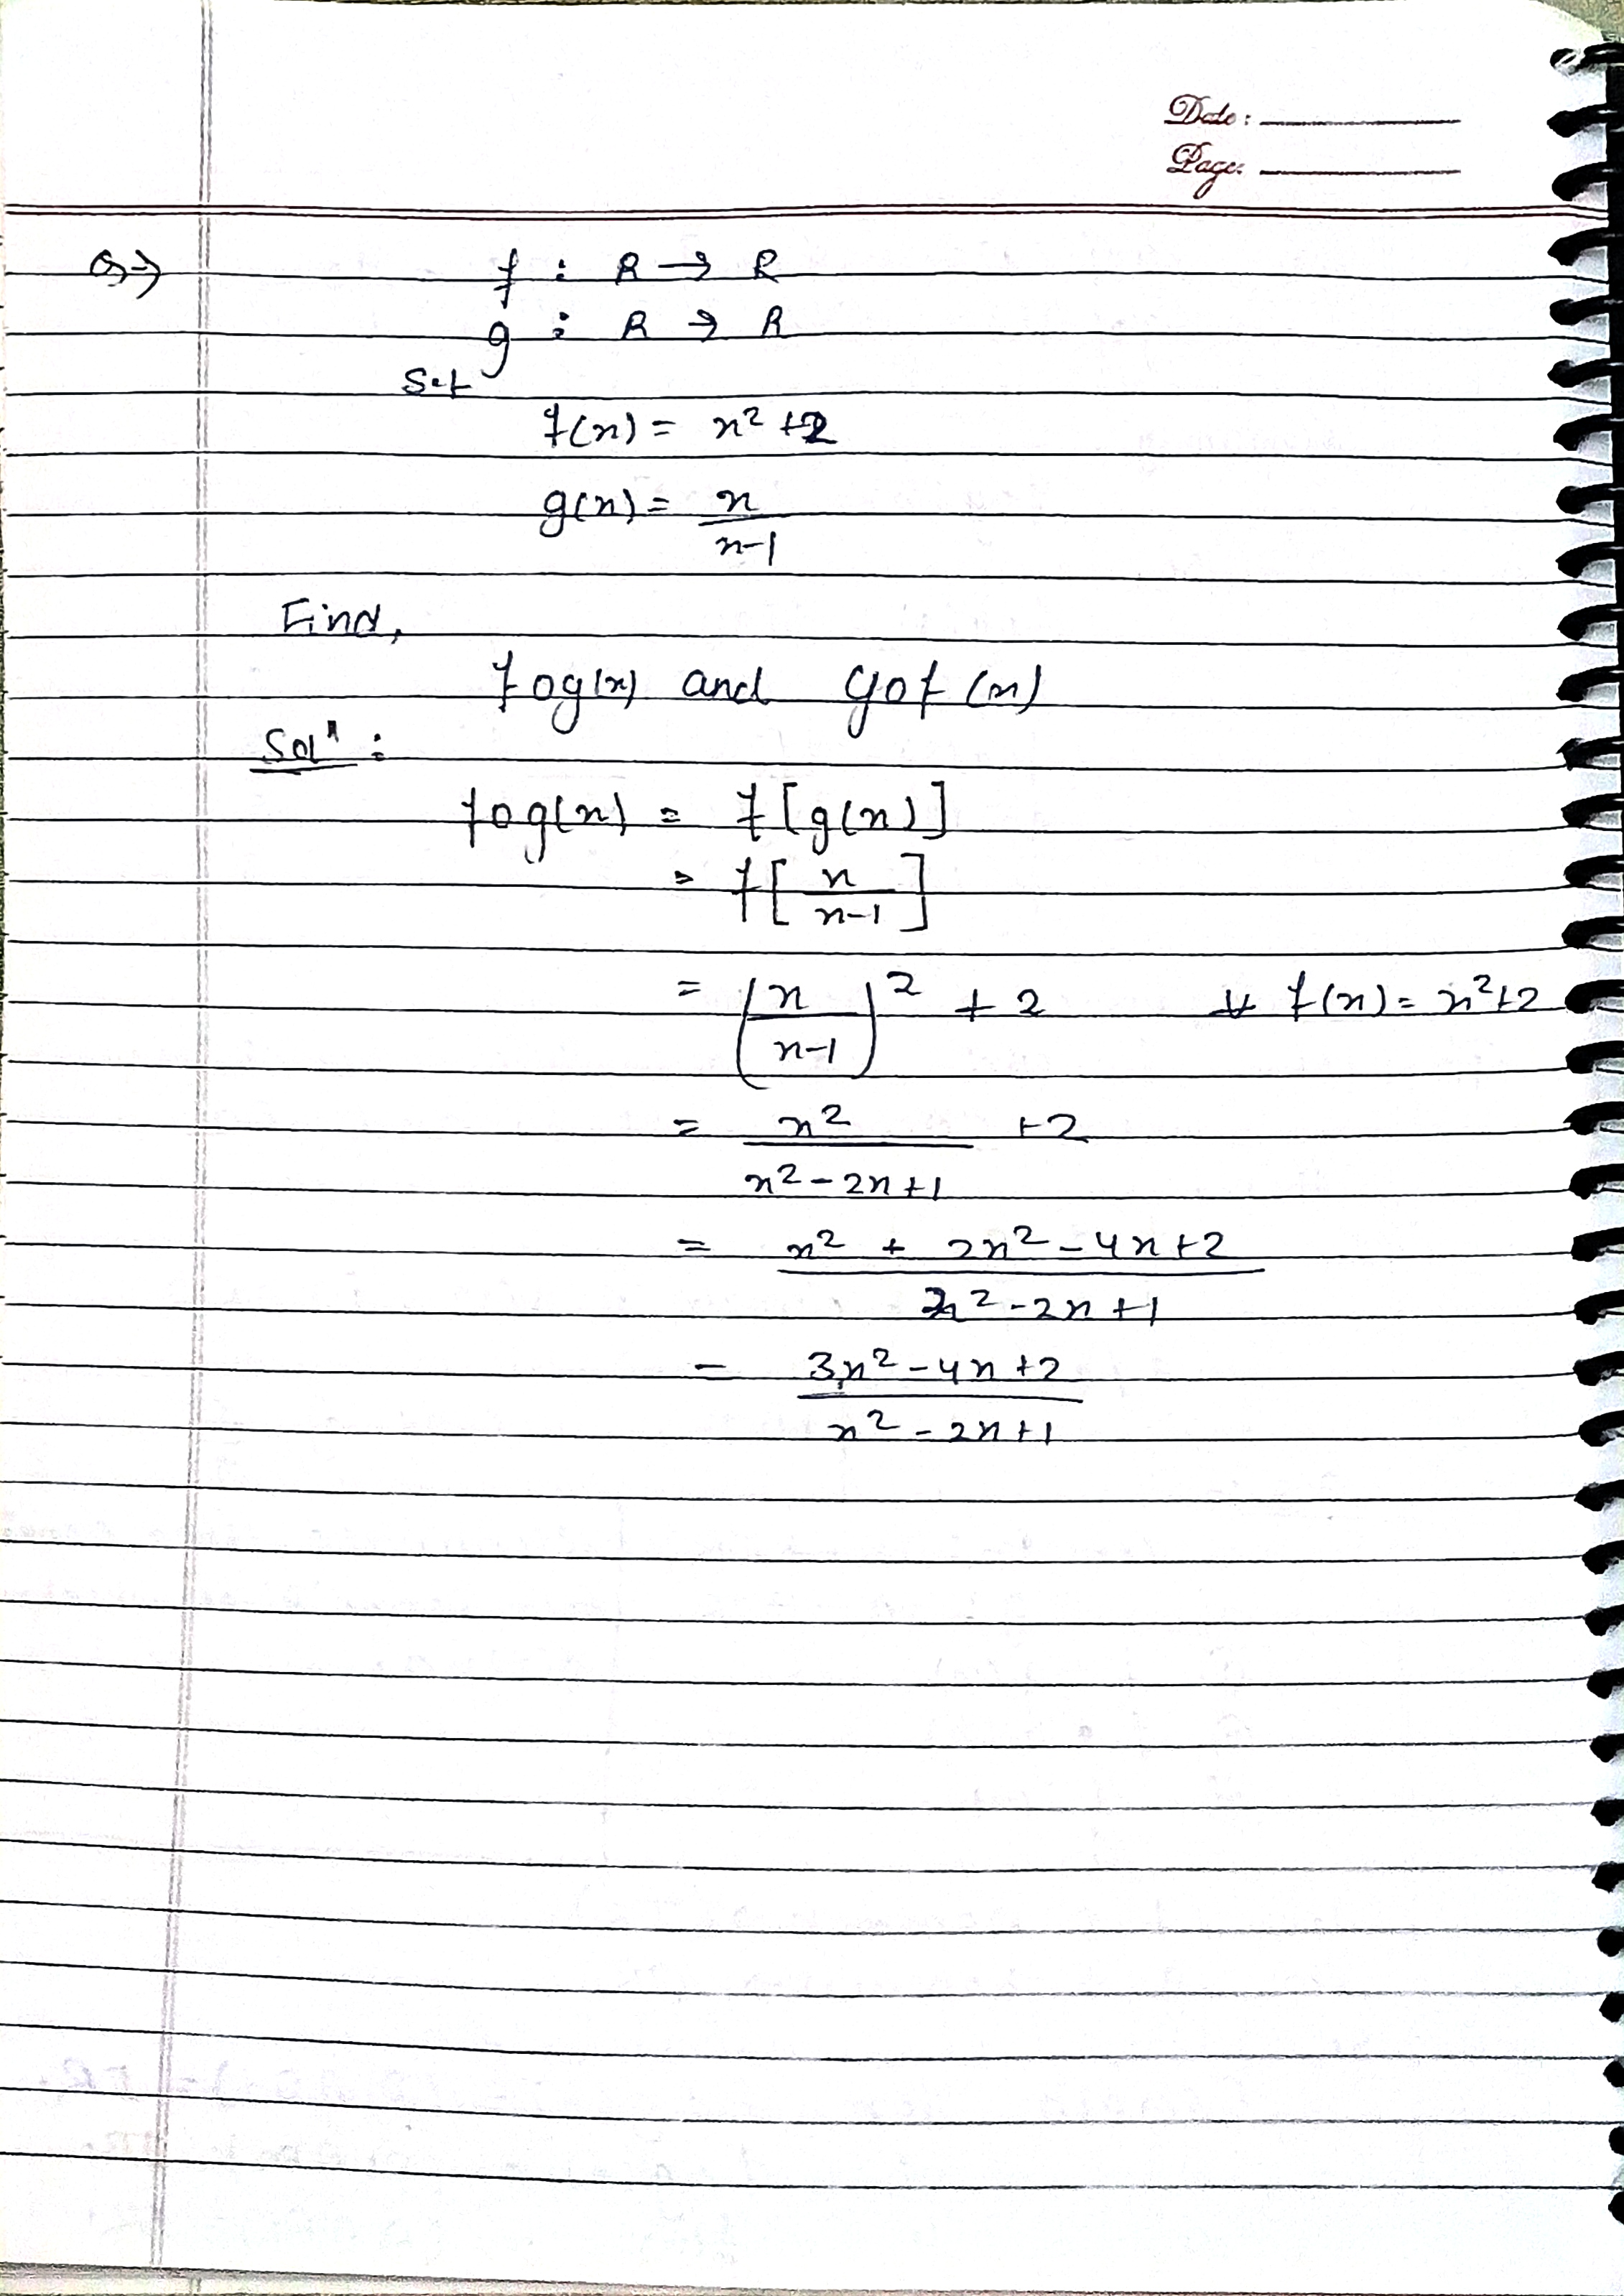 Date:
Page:
Q→ f : R → R
g : R → R
Set
f(x) = x² + 2
g(x) = x
x-1
Find,
fog(x) and gof (x)
Solⁿ :
fog(x) = f [g(x)]
= f [ x
x-1 ]
= ( x )² + 2 f(x) = x²+2
x-1
= x² +2
x² - 2x + 1
= x² + 2x² - 4x + 2
x² - 2x + 1
= 3x² - 4x + 2
x² - 2x + 1